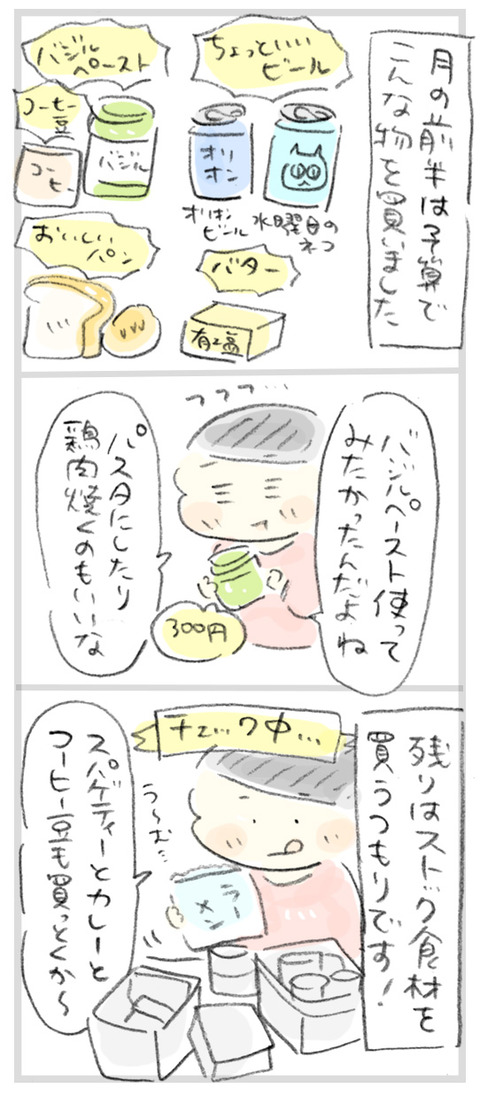 月の前半は予算で
こんな物を買いました
ちょっといい
ビール
オリ
オン
オリオン
ビール
水曜日の
ネコ
バジル
ペースト
コーヒー
豆
バジル
コー
ヒー
バター
有塩
おいしい
パン
バジルペースト使って
みたかったんだよね
フフフ…
300円
パスタにしたり
鶏肉焼くのもいいな
残りはストック食材を
買うつもりです!
チェック中…
う~む…
ラー
メン
スパゲティーとカレーと
コーヒー豆も買っとくか~